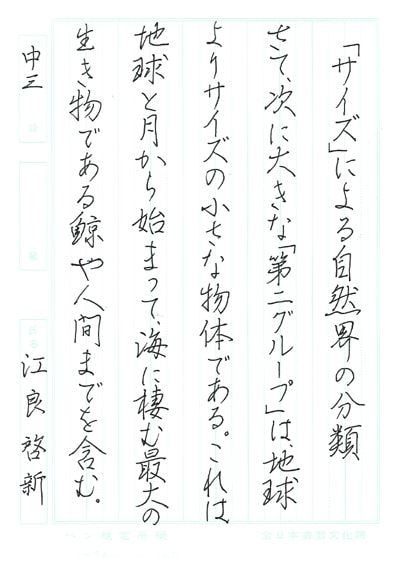 「サイズ」による自然界の分類
さて、次に大きな「第二グループ」は、地球
よりサイズの小さな物体である。これは
地球と月から始まって、海に棲む最大の
生き物である鯨や人間までを含む。
中三
段
級
氏名
江良啓新
ペン検定用紙
全日本書芸文化院